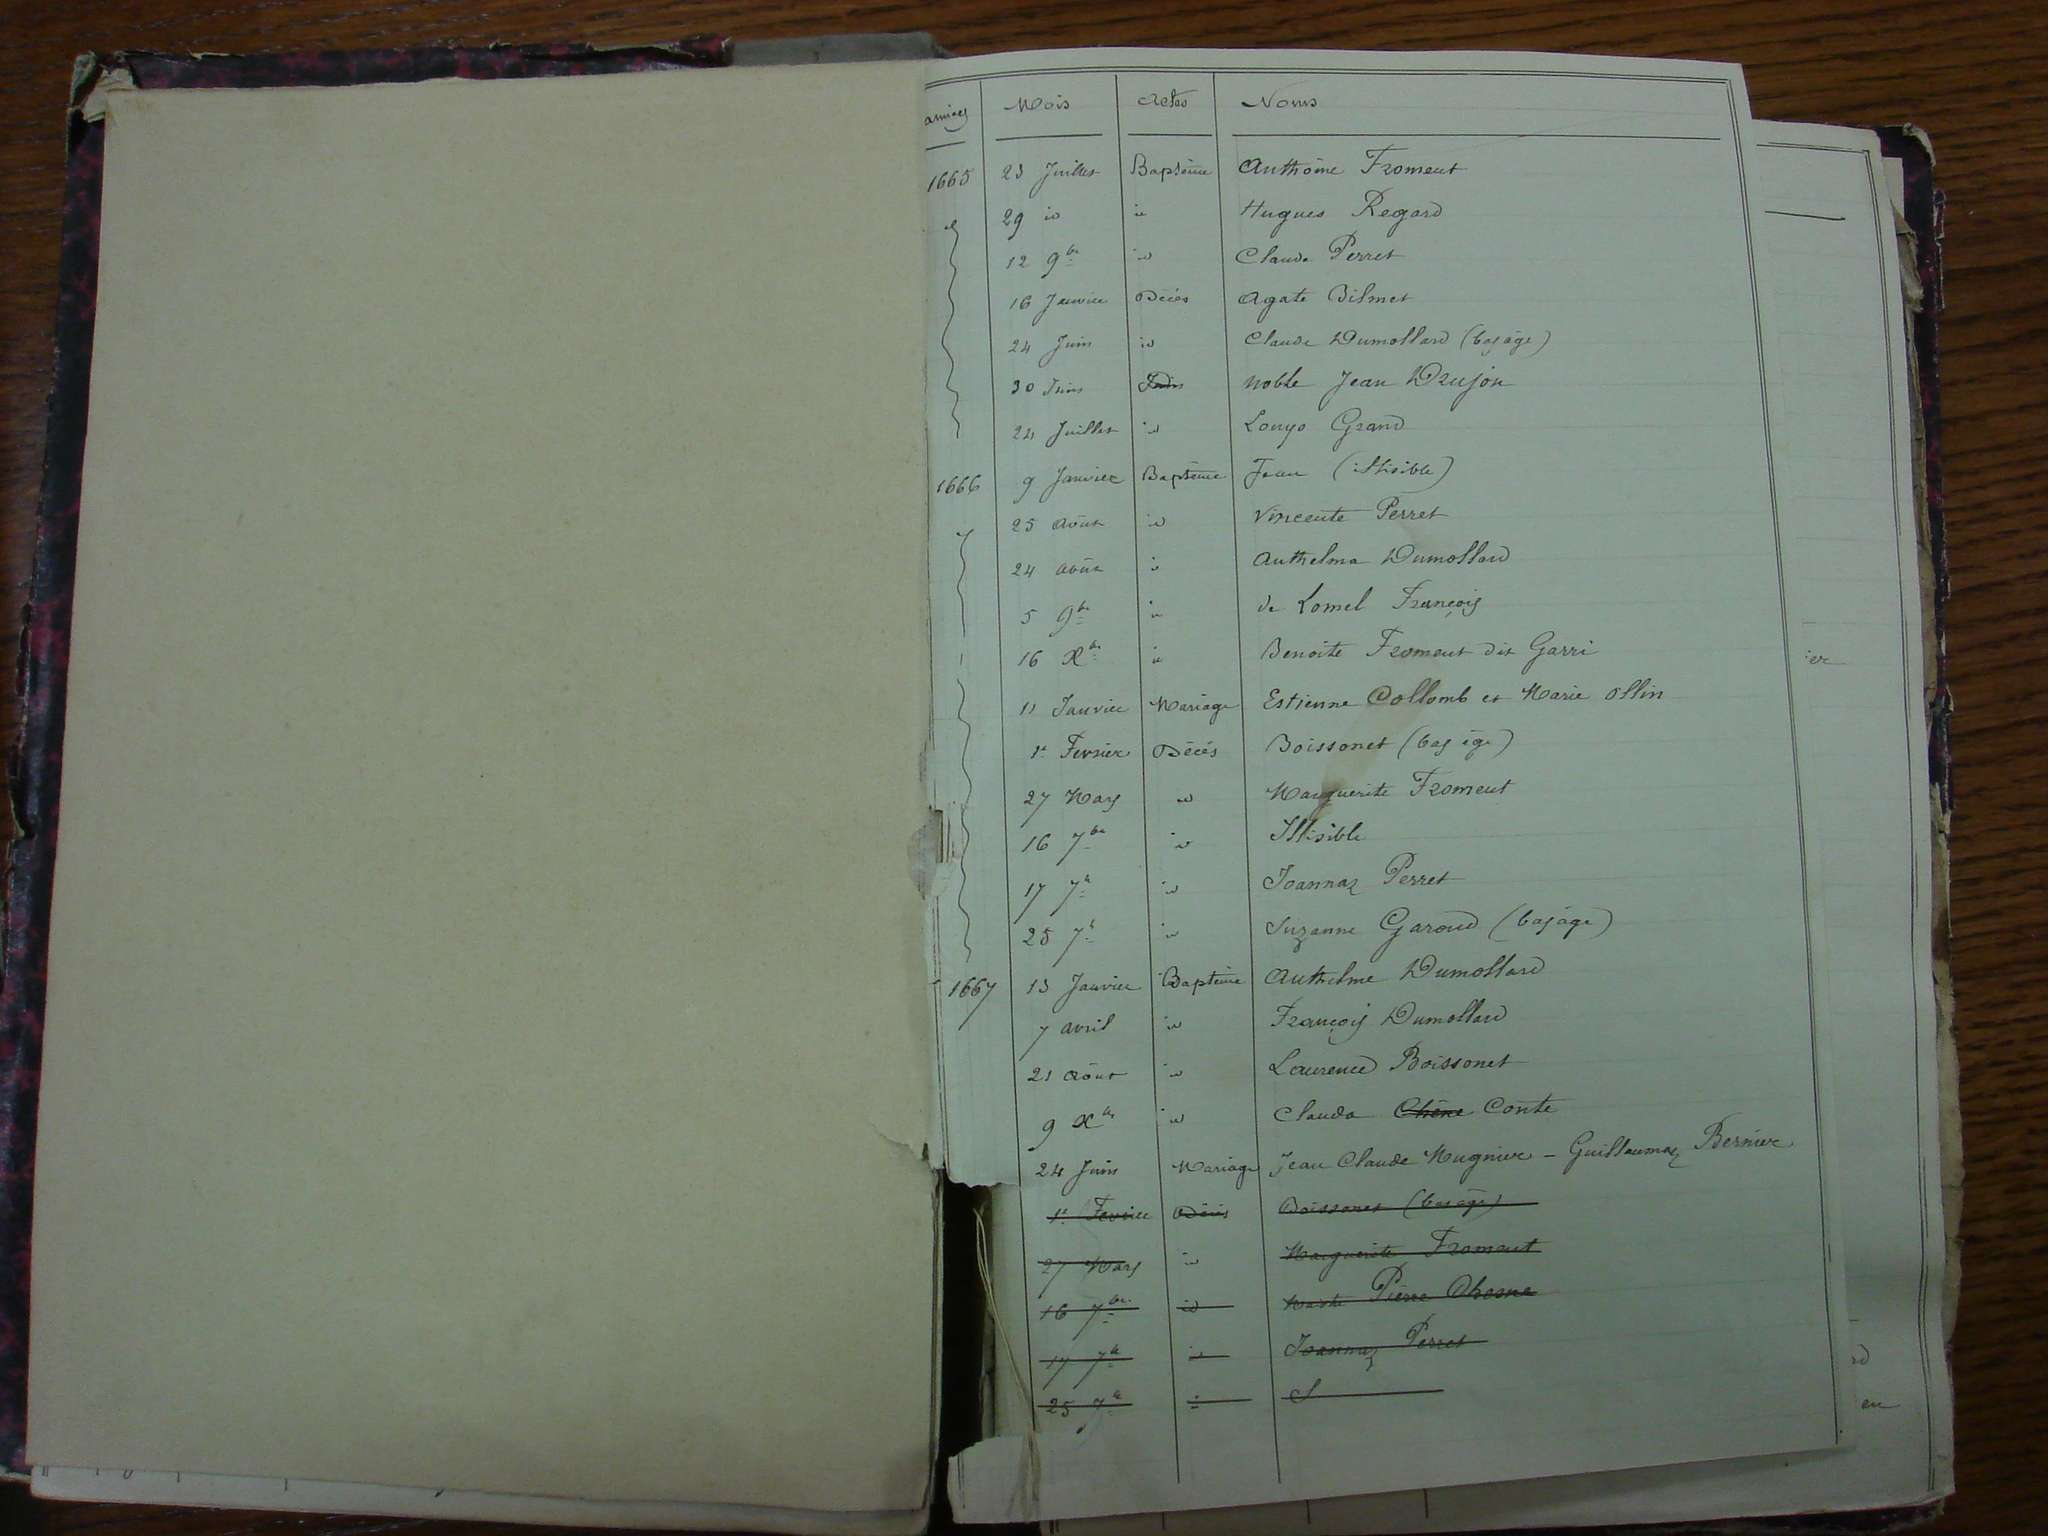 années Mois Actes Noms
1665 23 Juillet Baptême Anthoine Froment
29 id id Hugues Regard
12 9bre id Claude Perret
16 Janvier Décès Agate Bilmet
24 Juin id Claude Dumollard (bas âge)
30 Juin noble Jean Drujon
24 Juillet id Louyo Grand
1666 9 Janvier Baptême Jean (illisible)
25 Août id Vincente Perret
24 Août id Anthelma Dumollard
5 9bre id de Lomel François
16 Xbre id Benoite Froment dit Garri
11 Janvier Mariage Estienne Collomb et Marie Ollin
1er Fevrier Décès Boissonet (bas âge)
27 Mars id Marguerite Froment
16 7bre id Illisible
17 7bre id Joannaz Perret
25 7bre id Suzanne Garoud (bas âge)
1667 13 Janvier Baptême Anthelme Dumollard
7 avril id François Dumollard
21 Août id Laurence Boissonet
9 Xbre id Clauda Chêne Conte
24 Juin Mariage Jean Claude Mugnier - Guillaumaz Bernier
1er Fevrier Décès Boissonet (bas âge)
27 Mars id Marguerite Froment
16 7bre id Pierre Chesne
17 7bre id Joannaz Perret
25 7bre id S